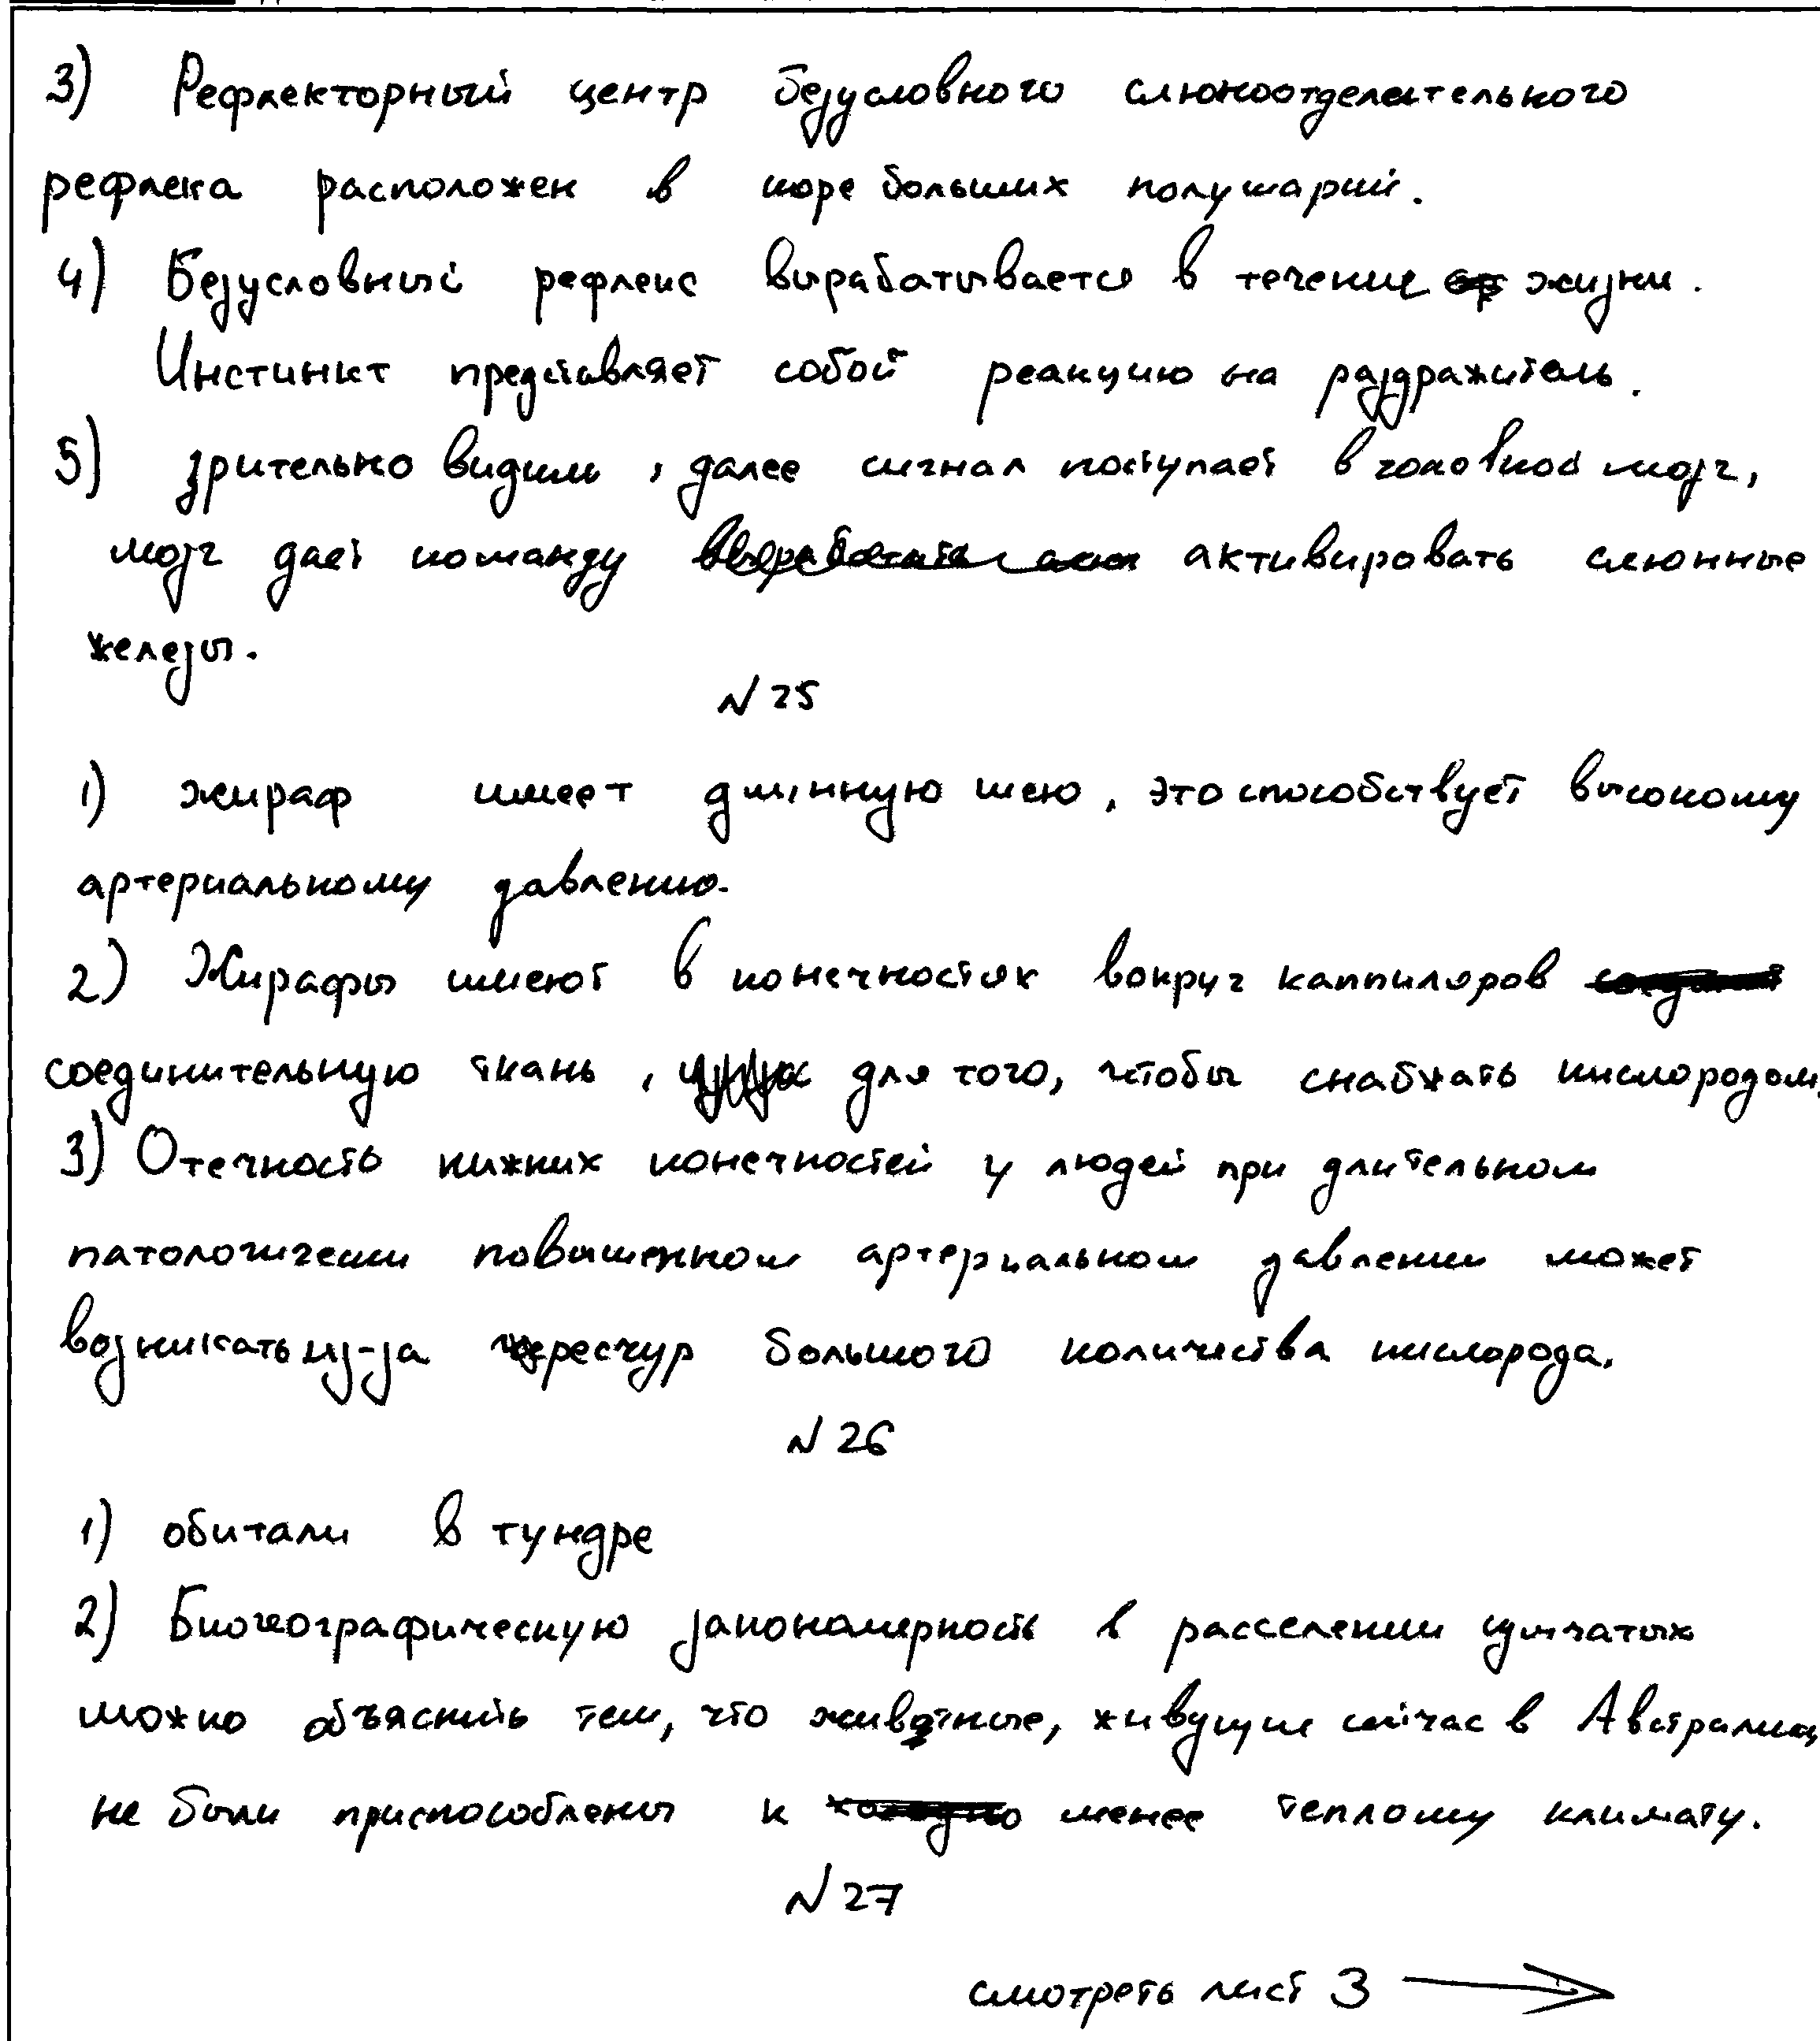 3) Рефлекторный центр безусловного слюноотделительного
рефлека расположен в коре больших полушарий.
4) Безусловный рефлекс вырабатывается в течение жизни.
Инстинкт представляет собой реакцию на раздражитель.
5) зрительно видим, далее сигнал поступает в головной мозг,
мозг дает команду активировать слюнные
железы.
N 25
1) жираф имеет длинную шею, это способствует высокому
артериальному давлению.
2) Жирафы имеют в конечностях вокруг каппиляров
соединительную ткань, для того, чтобы снабжать кислородом.
3) Отечность нижних конечностей у людей при длительном
патологически повышенном артериальном давлении может
возникать из-за чересчур большого количества кислорода.
N 26
1) обитали в тундре
2) Биогеографическую закономерность в расселении сумчатых
можно объяснить тем, что животные, живущие сейчас в Австралии,
не были приспособлены к менее теплому климату.
N 27
смотреть лист 3 →